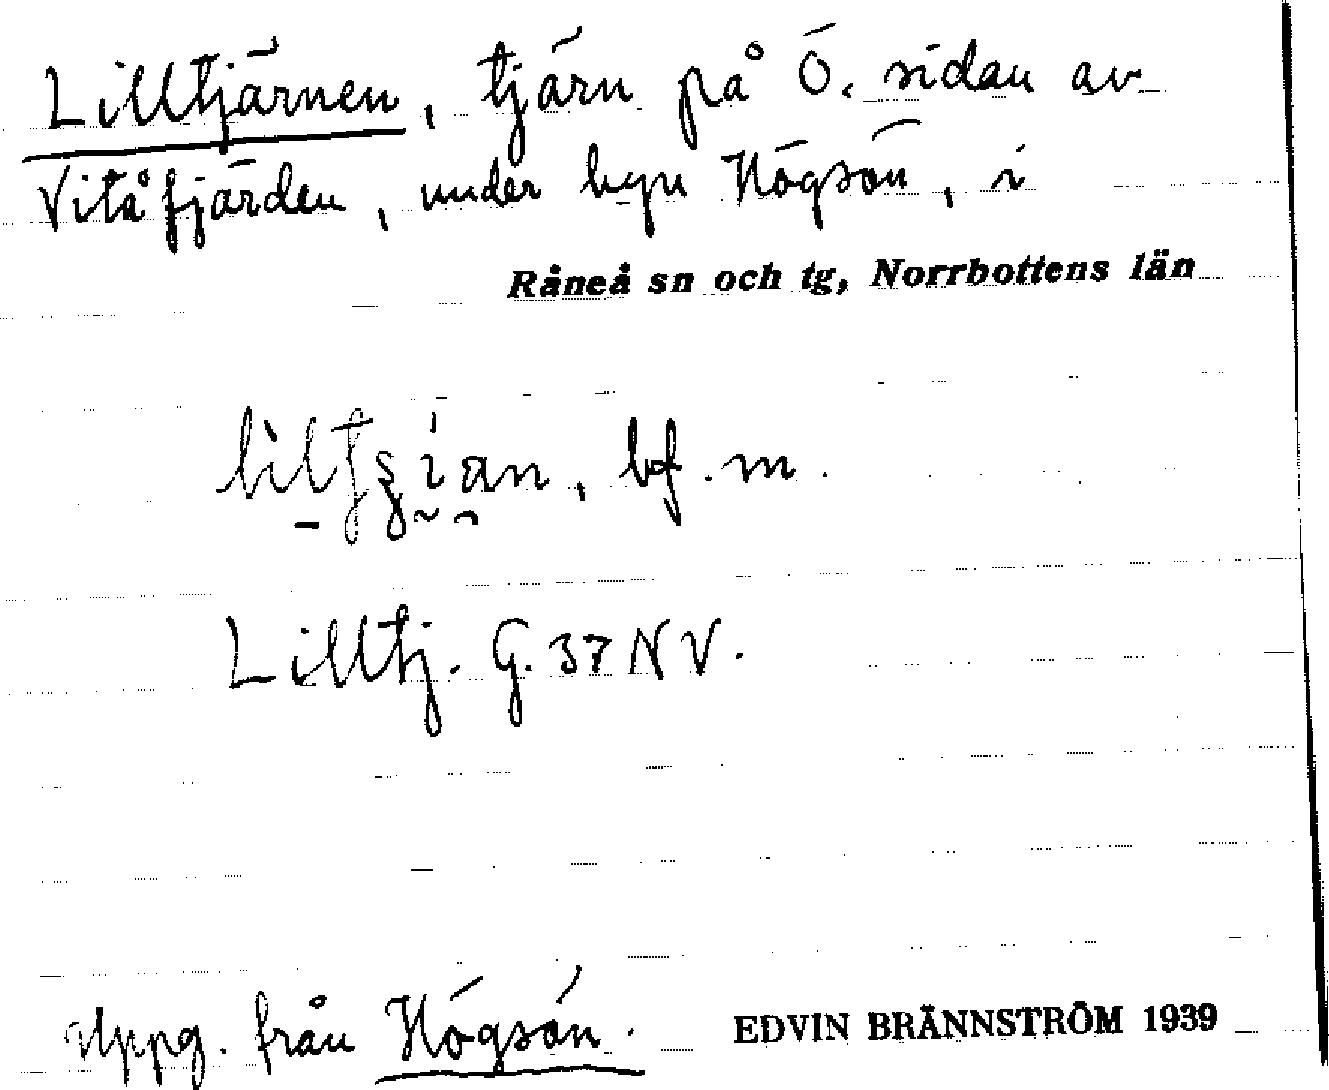 Lilltjärnen, tjärn på Ö. sidan av
Vitåfjärden, under byn Högsön, i
Råneå sn och tg, Norrbottens län
bf. m.
Lilltj. G. 37 NV.
Uppg. från Högsön.
EDVIN BRÄNNSTRÖM 1939